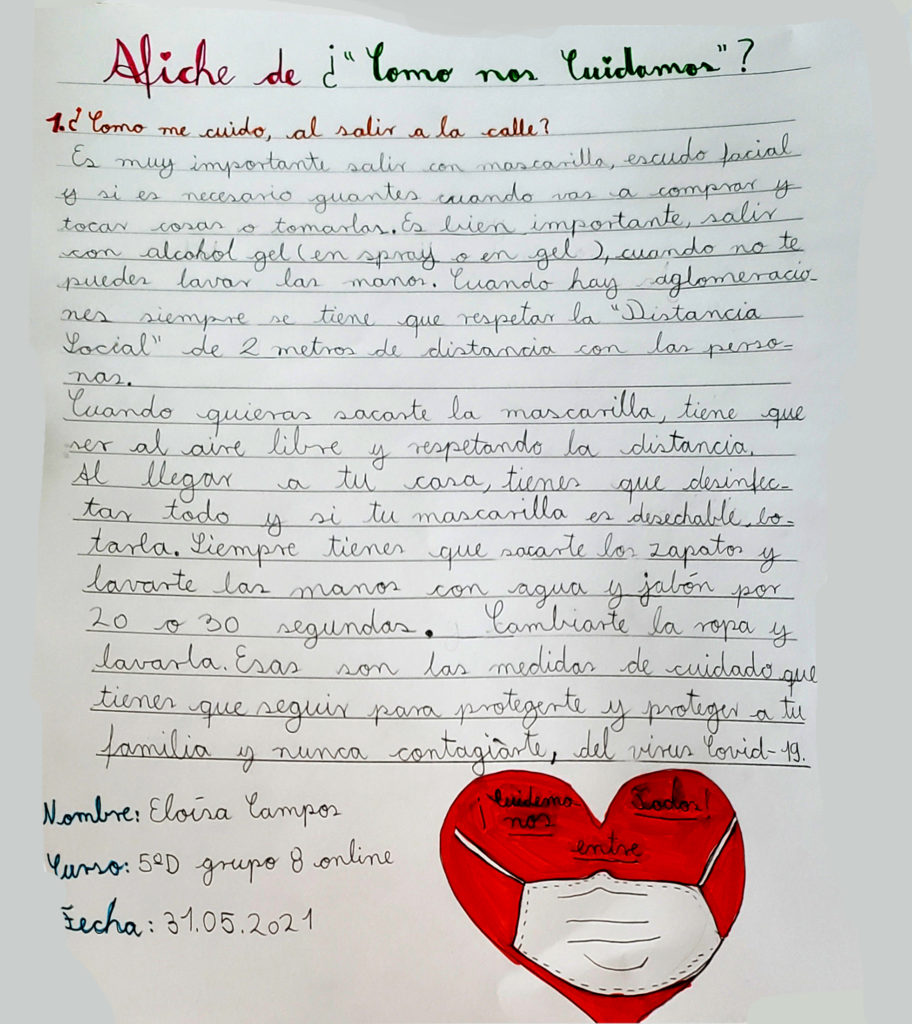 Afiche de ¿"Como nos Cuidamos"?
1.¿Como me cuido, al salir a la calle?
Es muy importante salir con mascarilla, escudo facial
y si es necesario guantes cuando vas a comprar y
tocar cosas o tomarlas. Es bien importante, salir
con alcohol gel (en spray o en gel), cuando no te
puedes lavar las manos. Cuando hay aglomeracio-
nes siempre se tiene que respetar la "Distancia
Social" de 2 metros de distancia con las perso-
nas.
Cuando quieras sacarte la mascarilla, tiene que
ser al aire libre y respetando la distancia.
Al llegar a tu casa, tienes que desinfec-
tar todo y si tu mascarilla es desechable, bo-
tarla. Siempre tienes que sacarte los zapatos y
lavarte las manos con agua y jabón por
20 o 30 segundos. Cambiarte la ropa y
lavarla. Esas son las medidas de cuidado que
tienes que seguir para protegerte y proteger a tu
familia y nunca contagiarte, del virus Covid-19.
Nombre: Eloísa Campos
Curso: 5ºD grupo 8 online
Fecha: 31.05.2021
¡Cuidemo
nos
entre
Todos!